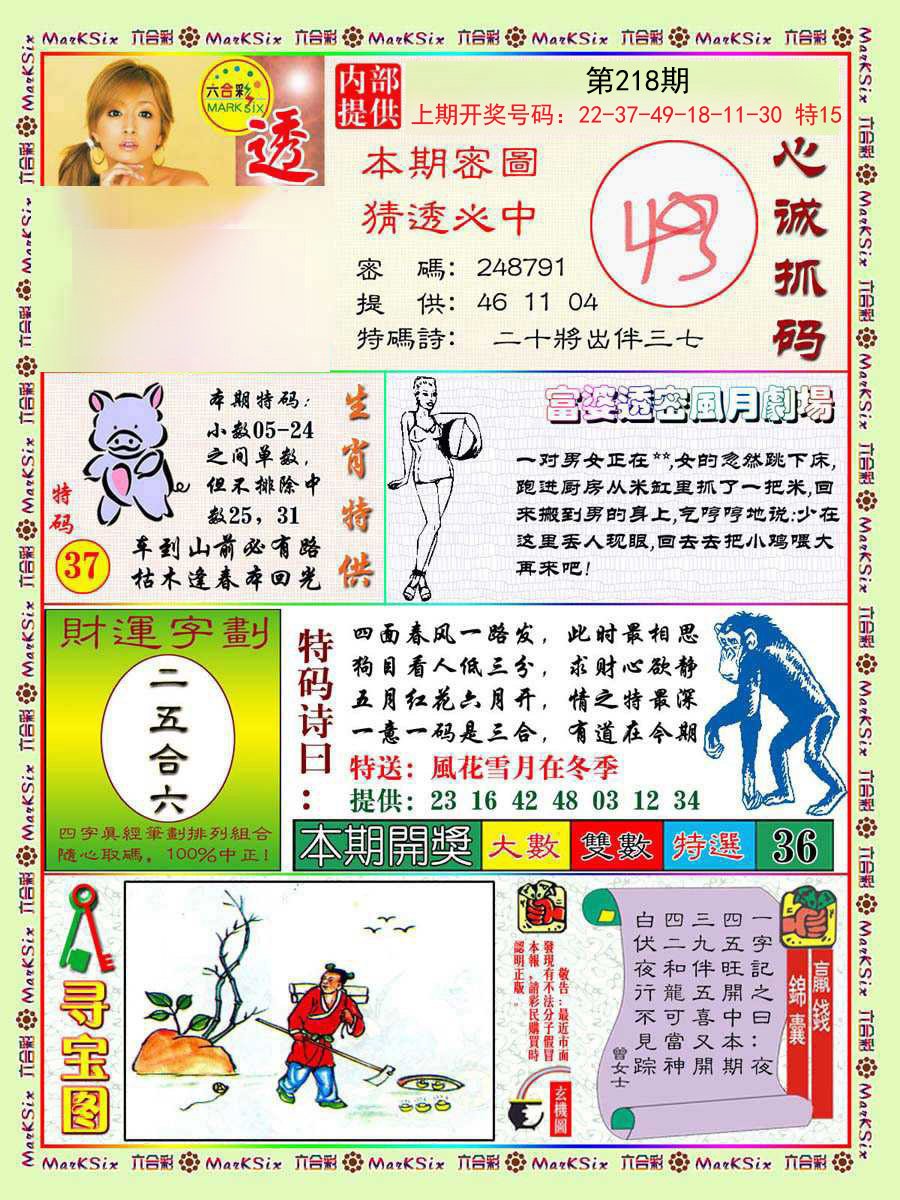 MarKSix 六合彩 MarKSix 六合彩 MarKSix 六合彩 MarKSix 六合彩 MarKSix 六合彩
六合彩
MARK SIX
透
内部
提供
第218期
上期开奖号码：22-37-49-18-11-30 特15
本期密圖
猜透必中
密 碼：248791
提 供：46 11 04
特碼詩： 二十將出伴三七
心诚抓码
本期特码：
小数05-24
之间单数，
但不排除中
数25，31
生肖特供
特码
37
车到山前必有路
枯木逢春本回光
富婆透密風月劇場
一对男女正在**,女的忽然跳下床,
跑进厨房从米缸里抓了一把米,回
来搬到男的身上,气哼哼地说:少在
这里丢人现眼,回去去把小鸡喂大
再来吧!
財運字劃
二五合六
四字真經筆劃排列組合
隨心取碼。100%中正!
特码诗曰：
四面春风一路发，此时最相思
狗目看人低三分，求财心欲静
五月红花六月开，情之特最深
一意一码是三合，有道在今期
特送：風花雪月在冬季
提供：23 16 42 48 03 12 34
本期開獎 大數 雙數 特選 36
寻宝图
敬告:最近市面
發現有不法分子假冒
本報,請彩民購買時
認明正版。
玄機圖
贏錢
錦囊
一字記之曰：夜
四五旺開中本期
三九伴五喜又開
四二和龍可當神
白伏夜行不見踪
曾女士
MarKSix 六合彩 MarKSix 六合彩 MarKSix 六合彩 MarKSix 六合彩 MarKSix 六合彩